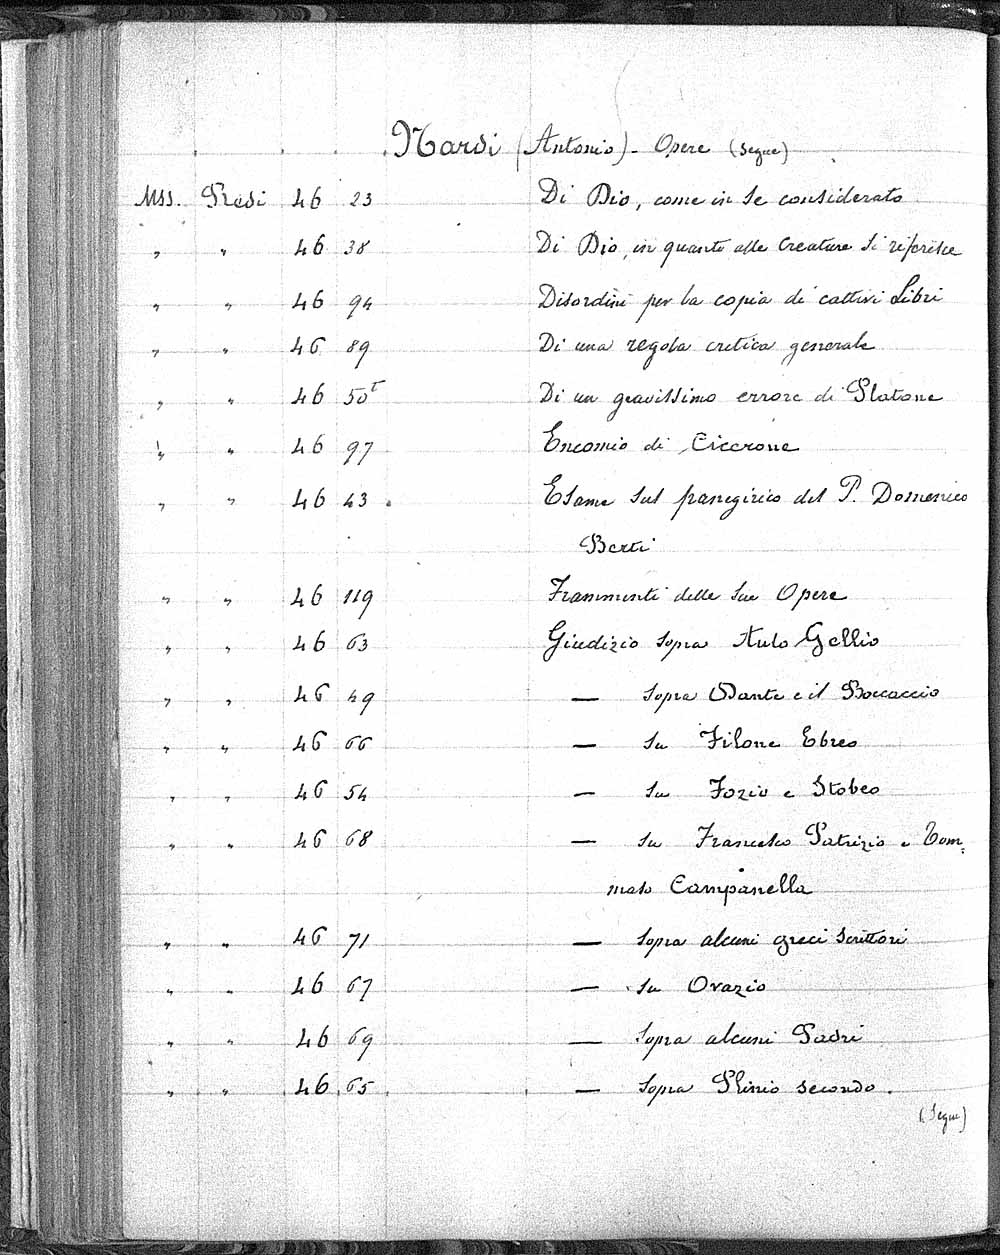 Nardi (Antonio) - Opere (segue)
Mss. Redi 46 23 Di Dio, come in se considerato
" " 46 38 Di Dio, in quanto alle Creature si riferisce
" " 46 94 Disordini per la copia di cattivi Libri
" " 46 89 Di una regola critica generale
" " 46 50t Di un gravissimo errore di Platone
" " 46 97 Encomio di Cicerone
" " 46 43 Esame sul panegirico del P. Domenico
Berti
" " 46 119 Frammenti delle sue Opere
" " 46 63 Giudizio sopra Aulo Gellio
" " 46 49 — sopra Dante e il Boccaccio
" " 46 66 — su Filone Ebreo
" " 46 54 — su Fozio e Stobeo
" " 46 68 — su Francesco Patrizio e Tom=
maso Campanella
" " 46 71 — sopra alcuni greci scrittori
" " 46 67 — su Orazio
" " 46 69 — sopra alcuni Padri
" " 46 65 — sopra Plinio secondo.
(segue)